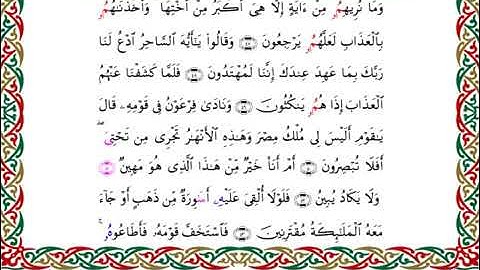 وَمَا نُرِيهِمُۥ مِّنْ ءَايَةٍ إِلَّا هِىَ أَكْبَرُ مِنْ أُخْتِهَا وَأَخَذْنَٰهُمُۥ
بِٱلْعَذَابِ لَعَلَّهُمُۥ يَرْجِعُونَ وَقَالُوا۟ يَٰٓأَيُّهَ ٱلسَّاحِرُ ٱدْعُ لَنَا
رَبَّكَ بِمَا عَهِدَ عِندَكَ إِنَّنَا لَمُهْتَدُونَ فَلَمَّا كَشَفْنَا عَنْهُمُ
ٱلْعَذَابَ إِذَا هُمُۥ يَنكُثُونَ وَنَادَىٰ فِرْعَوْنُ فِى قَوْمِهِۦ قَالَ
يَٰقَوْمِ أَلَيْسَ لِى مُلْكُ مِصْرَ وَهَٰذِهِ ٱلْأَنْهَٰرُ تَجْرِى مِن تَحْتِىَ ۖ
أَفَلَا تُبْصِرُونَ أَمْ أَنَا۠ خَيْرٌ مِّنْ هَٰذَا ٱلَّذِى هُوَ مَهِينٌ
وَلَا يَكَادُ يُبِينُ فَلَوْلَا أُلْقِىَ عَلَيْهِۦ أَسَٰوِرَةٌ مِّن ذَهَبٍ أَوْ جَآءَ
مَعَهُ ٱلْمَلَٰٓئِكَةُ مُقْتَرِنِينَ فَٱسْتَخَفَّ قَوْمَهُۥ فَأَطَاعُوهُۥ ۚ